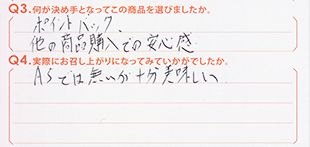 Q3.何が決め手となってこの商品を選びましたか。
ポイントバック、
他の商品購入での安心感
Q4.実際にお召し上がりになってみていかがでしたか。
A5では無いが十分美味しい